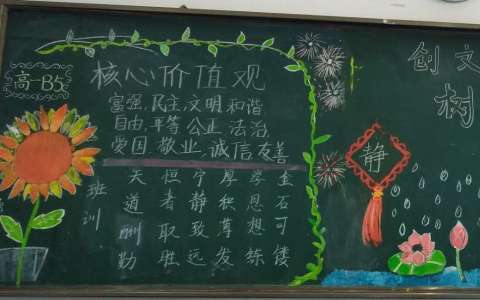 高一B5
核心价值观
富强,民主,文明,和谐
自由,平等,公正,法治,
爱国,敬业,诚信,友善
班训
天道酬勤
恒者取胜
宁静致远
厚积薄发
金石可镂
静
创文
树